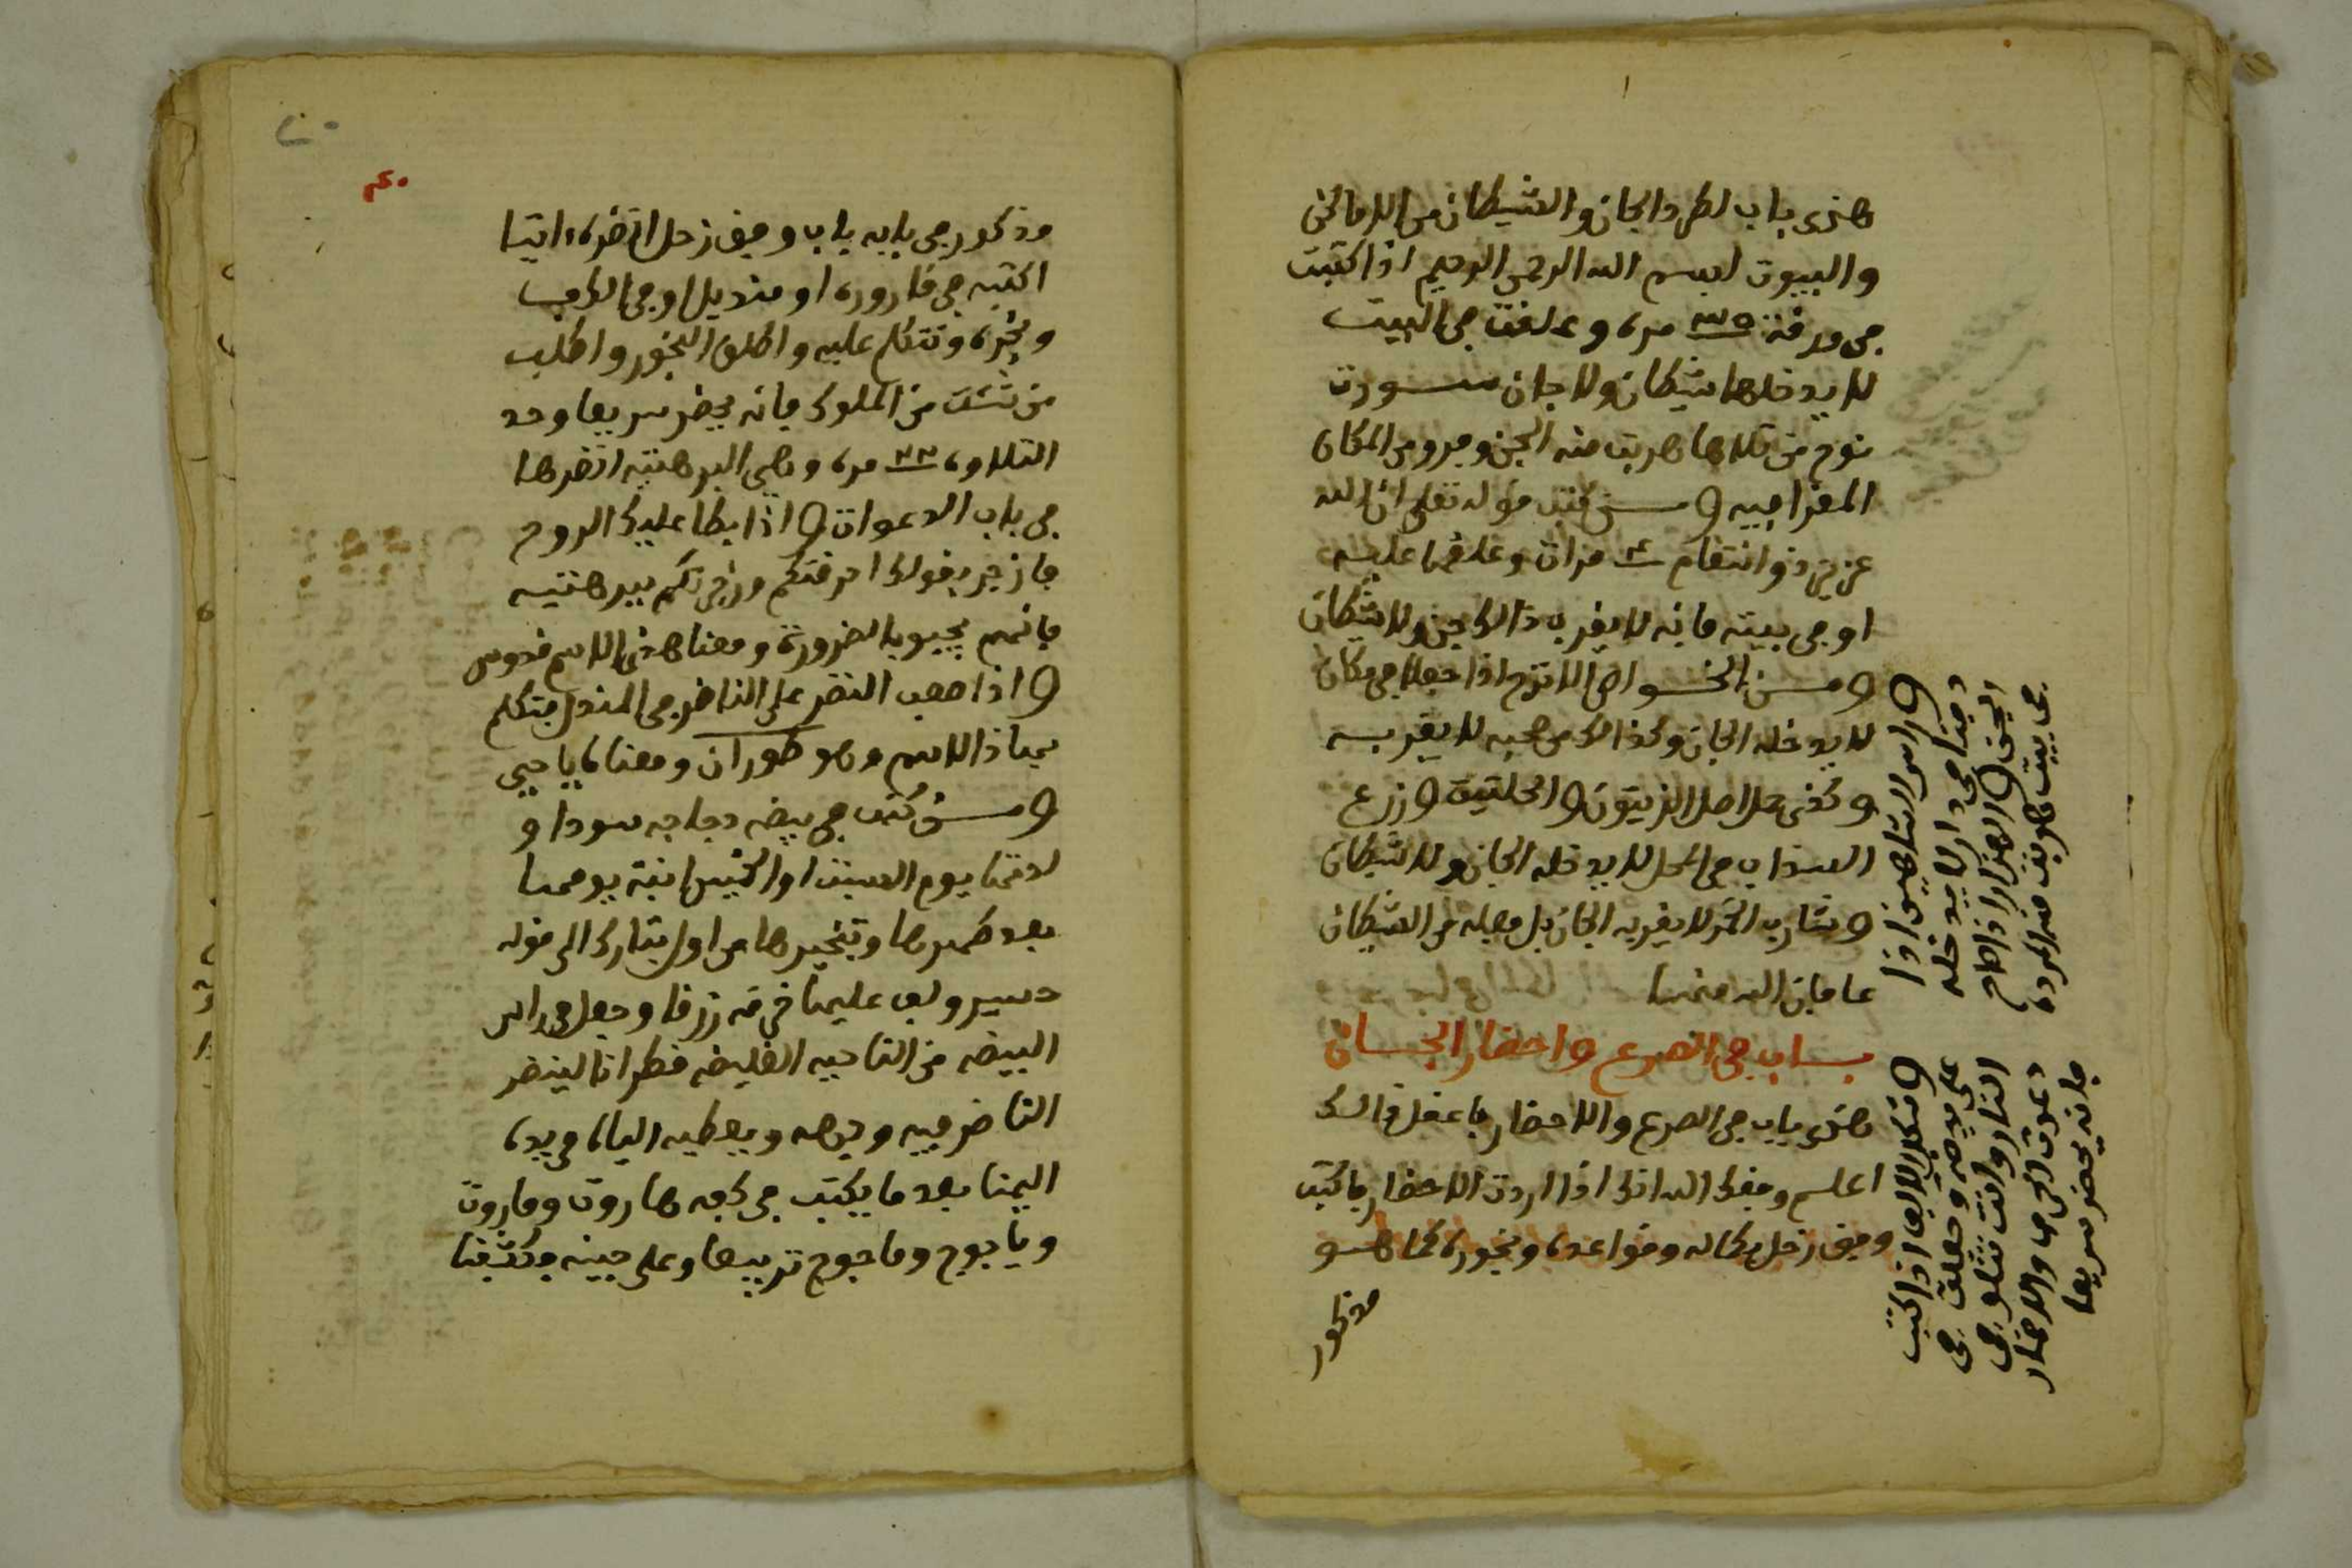 هذى باب لطرد الجان والشيطان من الاماكن
والبيوت ابسم الله الرحمن الرحيم اذا كتبت
في ورقة ٣٥ مره وعلقت في البيت
لا يدخلها شيطان ولا جان سورت
نوح من تلاها هربت منه الجن وجرو من المكان
المقرا فيه ومن كتب قوله تعلى ان الله
عزيز ذو انتقام ٤ مرات وعلقها عليه
او في بيته فانه لا يقربه ذالك جن ولا شيطان
ومن الخواص الاترج اذا جعل في مكان
لا يدخله الجان وكذالك من صحبه لا يقربه
وكذى حل اصل الزيتون والحلتيت وزرع
السذاب في المحل لا يدخله الجان ولا شيطان
وشارب الخمر لا يقربه الجان بل فعله من الشيطان
عافان الله منها
باب في الصرع واحضار الجان
هذى باب في الصرع والاحضار فاعقل ذالك
اعلم وفقك الله انك اذا اردت الاحضار فاكتب
وفق زحل بكماله وقواعده وبخوره كما هو
مذكور
وراس الشاهين اذا
دفنا في دار لا يدخله
الجن والهزار اذا قام
في بيت هربت منه المرده
وتنكل الايق اذا كتبت
على يده وجعلت في
النار وانت تتلو في
دعوت الحرق والاحضار
فانه يحضر سريعا
٤٠
مذكور في بابه باب وفق زحل انضره اتيا
اكتبه في قاروره او منديل او في الكف
وبخره وتتكلم عليه واطلق البخور واطلب
من شئت من الملوك فانه يحضر سريعا وحد
التلاوه ٣٣ مره وهي البرهتيه انضرها
في باب الدعوات واذا بطا عليك الروح
فازجر بقولك احرقتكم وزجرتكم ببرهتيه
فانهم يجيبو بالضرورة ومعنا هذى الاسم قدوس
واذا صعب النضر على الناضر في المندل فتكلم
بهاذا الاسم وهو طوران ومعناه يا حيي
ومن كتب في بيضه دجاجه سودا و
لدتها يوم السبت او الخميس ابنة يومها
بعد طهرها وتبخيرها من اول تبارك الى قوله
حسير ولف عليها خرقه زرقا وجعل في راس
البيضه من الناحيه الغليضه قطرانا لينضر
الناضر فيه وجهه ويعطيه اليها في يده
اليمنا بعد ما يكتب في كفه هاروت وماروت
وياجوج وماجوج تربيعا وعلى جبينه فكشفنا